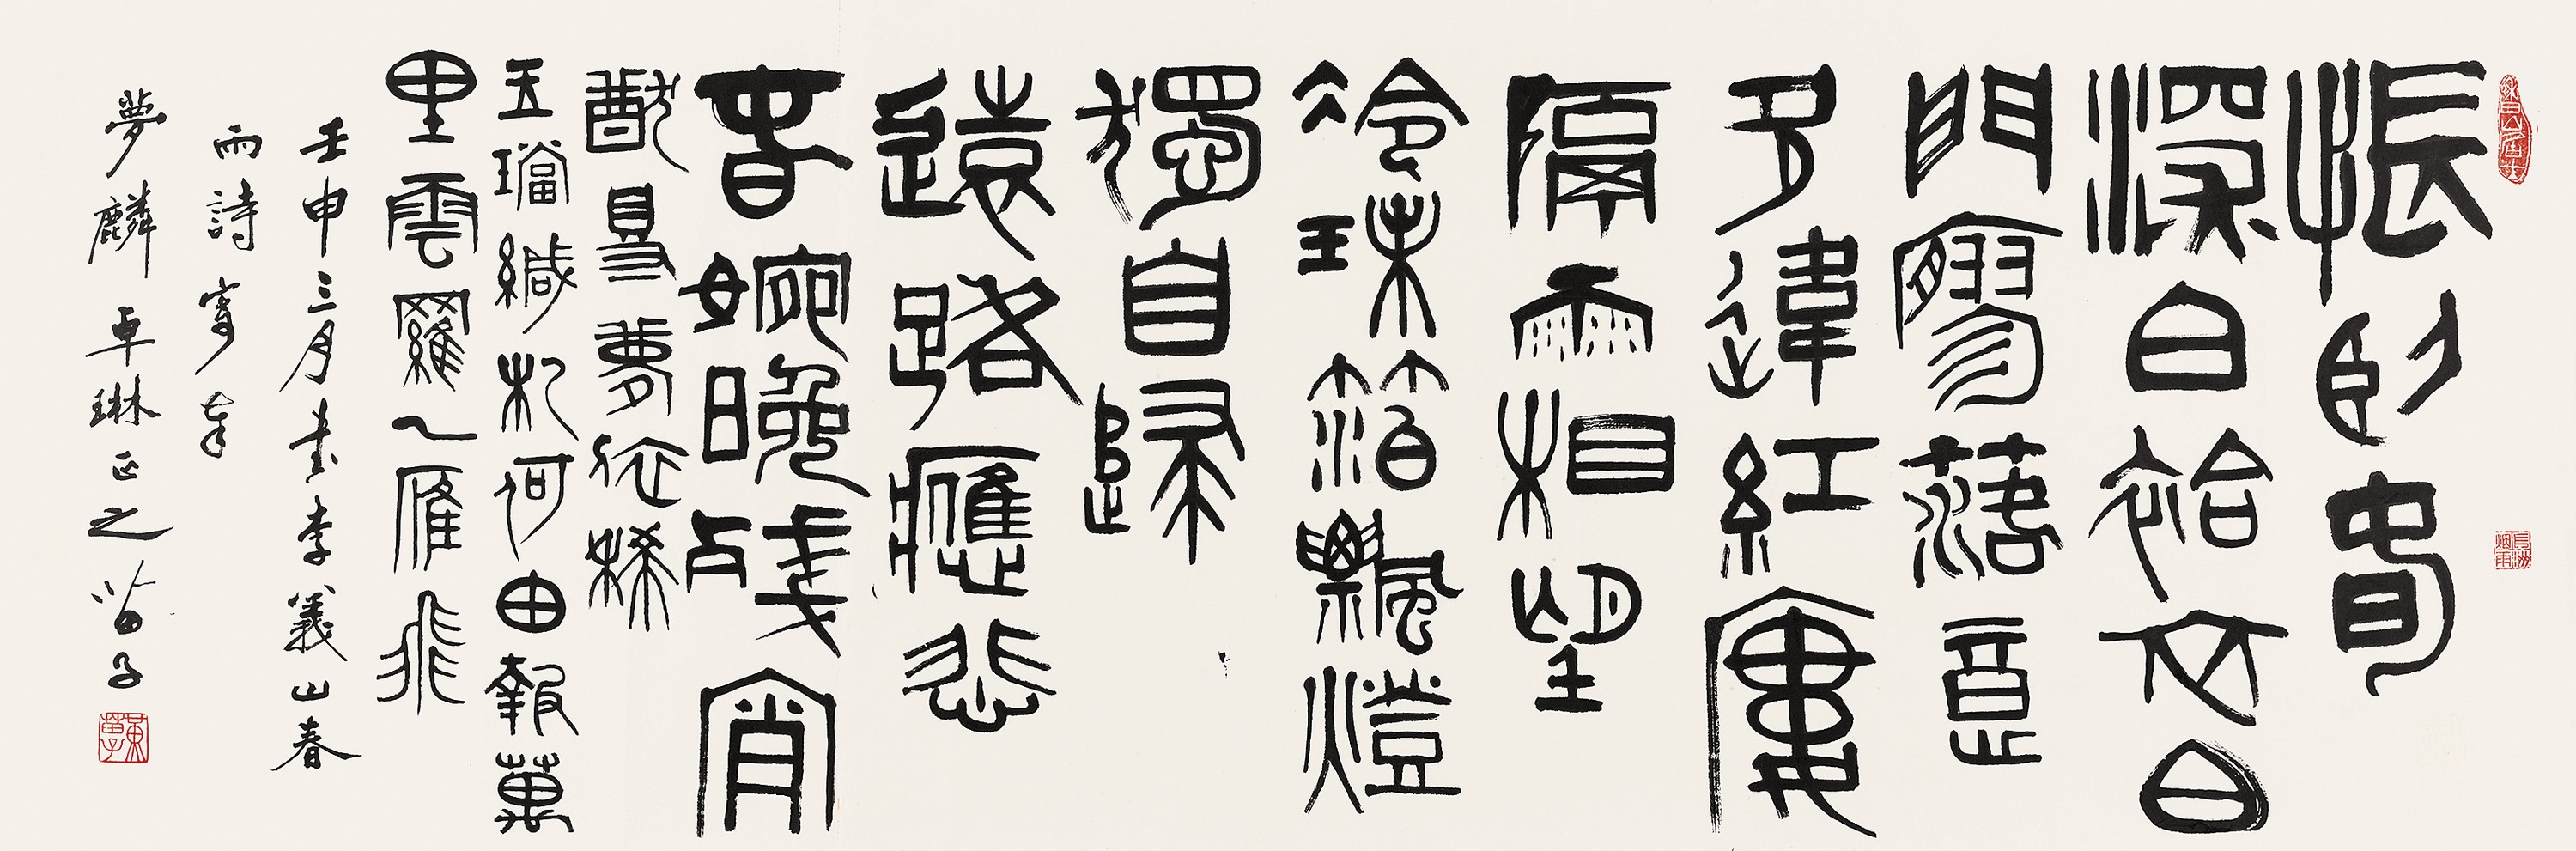 悵臥春
深白袷衣白
門寥落意
多違紅廔
隔雨相望
冷珠箔飄燈
獨自歸
遠路應悲
春婉晚殘宵
猶得夢依稀
玉璫緘札何由報萬
里雲羅一雁飛
壬申三月書李義山春
雨詩寄奉
夢麟卓琳正之苗子